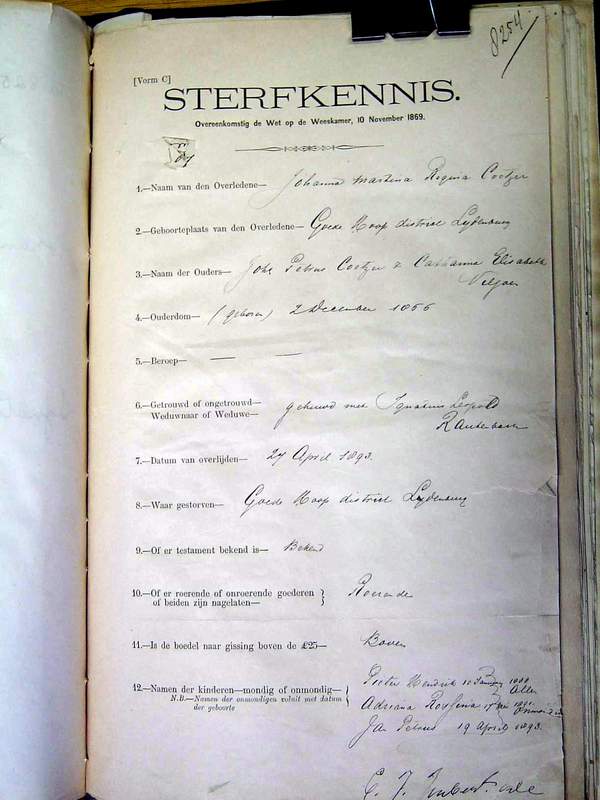 8254
[Vorm C]
STERFKENNIS.
Overeenkomstig de Wet op de Weeskamer, 10 November 1869.
1.—Naam van den Overledene— Johanna Martina Regina Coetzer
2.—Geboorteplaats van den Overledene— Goede Hoop district Lydenburg
3.—Naam der Ouders— Petrus Coetzer & Catharina Elisabeth
Viljoen
4.—Ouderdom— (geboren) 2 December 1866
5.—Beroep— — —
6.—Getrouwd of ongetrouwd—
Weduwnaar of Weduwe— gehuwd met Ignatius Leopold
Rautenbach
7.—Datum van overlijden— 27 April 1893.
8.—Waar gestorven— Goede Hoop district Lydenburg
9.—Of er testament bekend is— Bekend
10.—Of er roerende of onroerende goederen
of beiden zijn nagelaten— Roerende
11.—Is de boedel naar gissing boven de £25— Boven
12.—Namen der kinderen—mondig of onmondig—
N.B.—Namen der onmondigen voluit met datum
der geboorte
Pieter Hendrik 10 January
Allen
Adriana
Jan Petrus 19 April 1893.